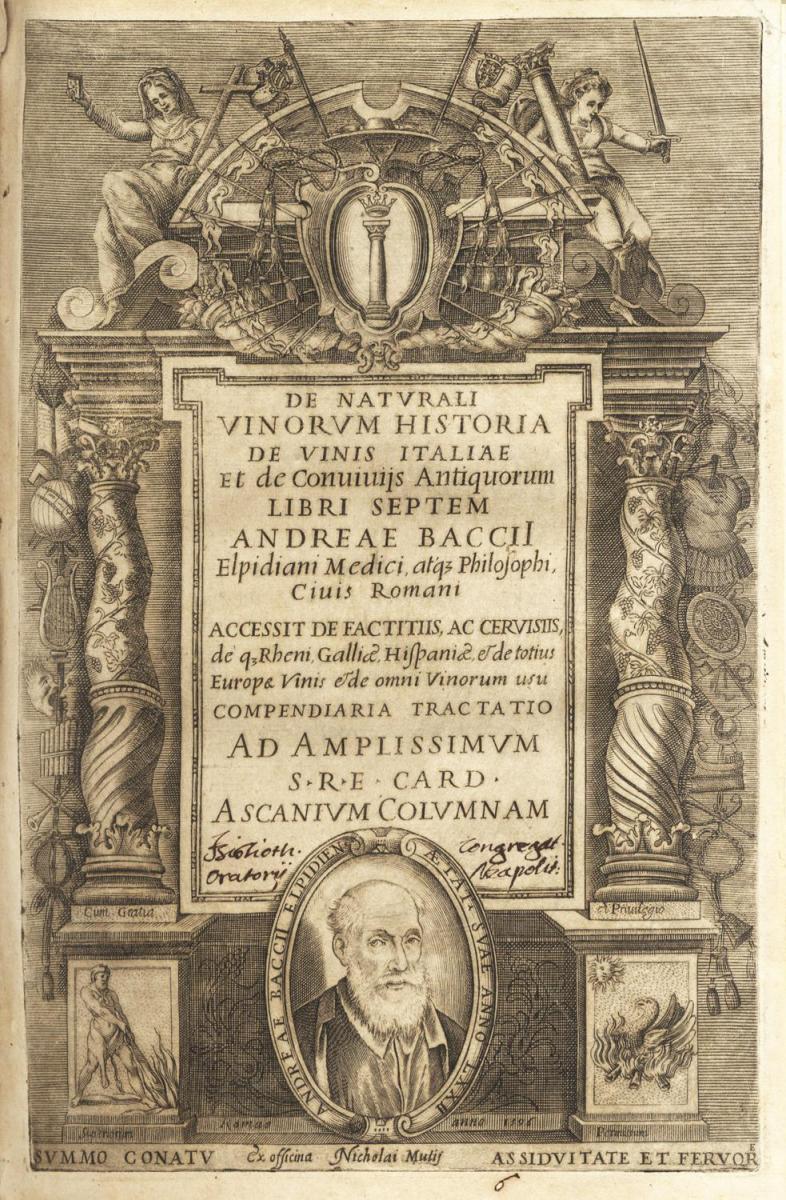 DE NATVRALI
VINORVM HISTORIA
DE VINIS ITALIAE
Et de Conuiuijs Antiquorum
LIBRI SEPTEM
ANDREAE BACCII
Elpidiani Medici, atqꝫ Philosophi,
Ciuis Romani
ACCESSIT DE FACTITIIS, AC CERVISIIS,
de qꝫ Rheni, Galliæ, Hispaniæ, et de totius
Europæ Vinis et de omni Vinorum usu
COMPENDIARIA TRACTATIO
AD AMPLISSIMVM
S·R·E· CARD·
ASCANIVM COLVMNAM
Biblioth. Congregat.
Oratorij Neapolit:
ANDREAE BACCII ELPIDIEN ÆTAT· SVAE ANNO LXXII
Cum Gratia et Priuilegio
Romae anno 1596
SVMMO CONATV Ex officina Nicholai Mutij ASSIDVITATE ET FERVORE
6